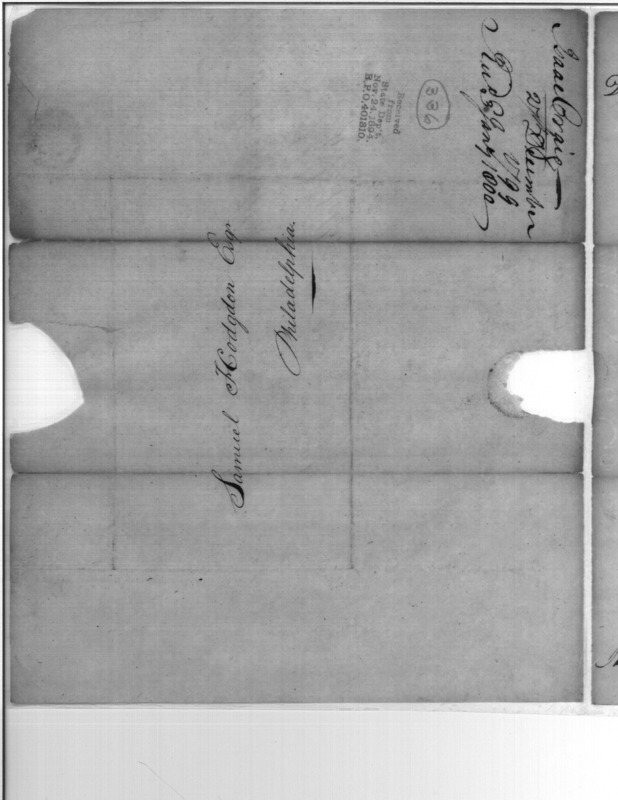 Isaac Craig
27 December
1799
Rec'd 9 Jany 1800
336
Received
from
State Dep't.
Nov. 24, 1894
R.P.O. 401810.
Samuel Hodgdon Esqr.
Philadelphia.